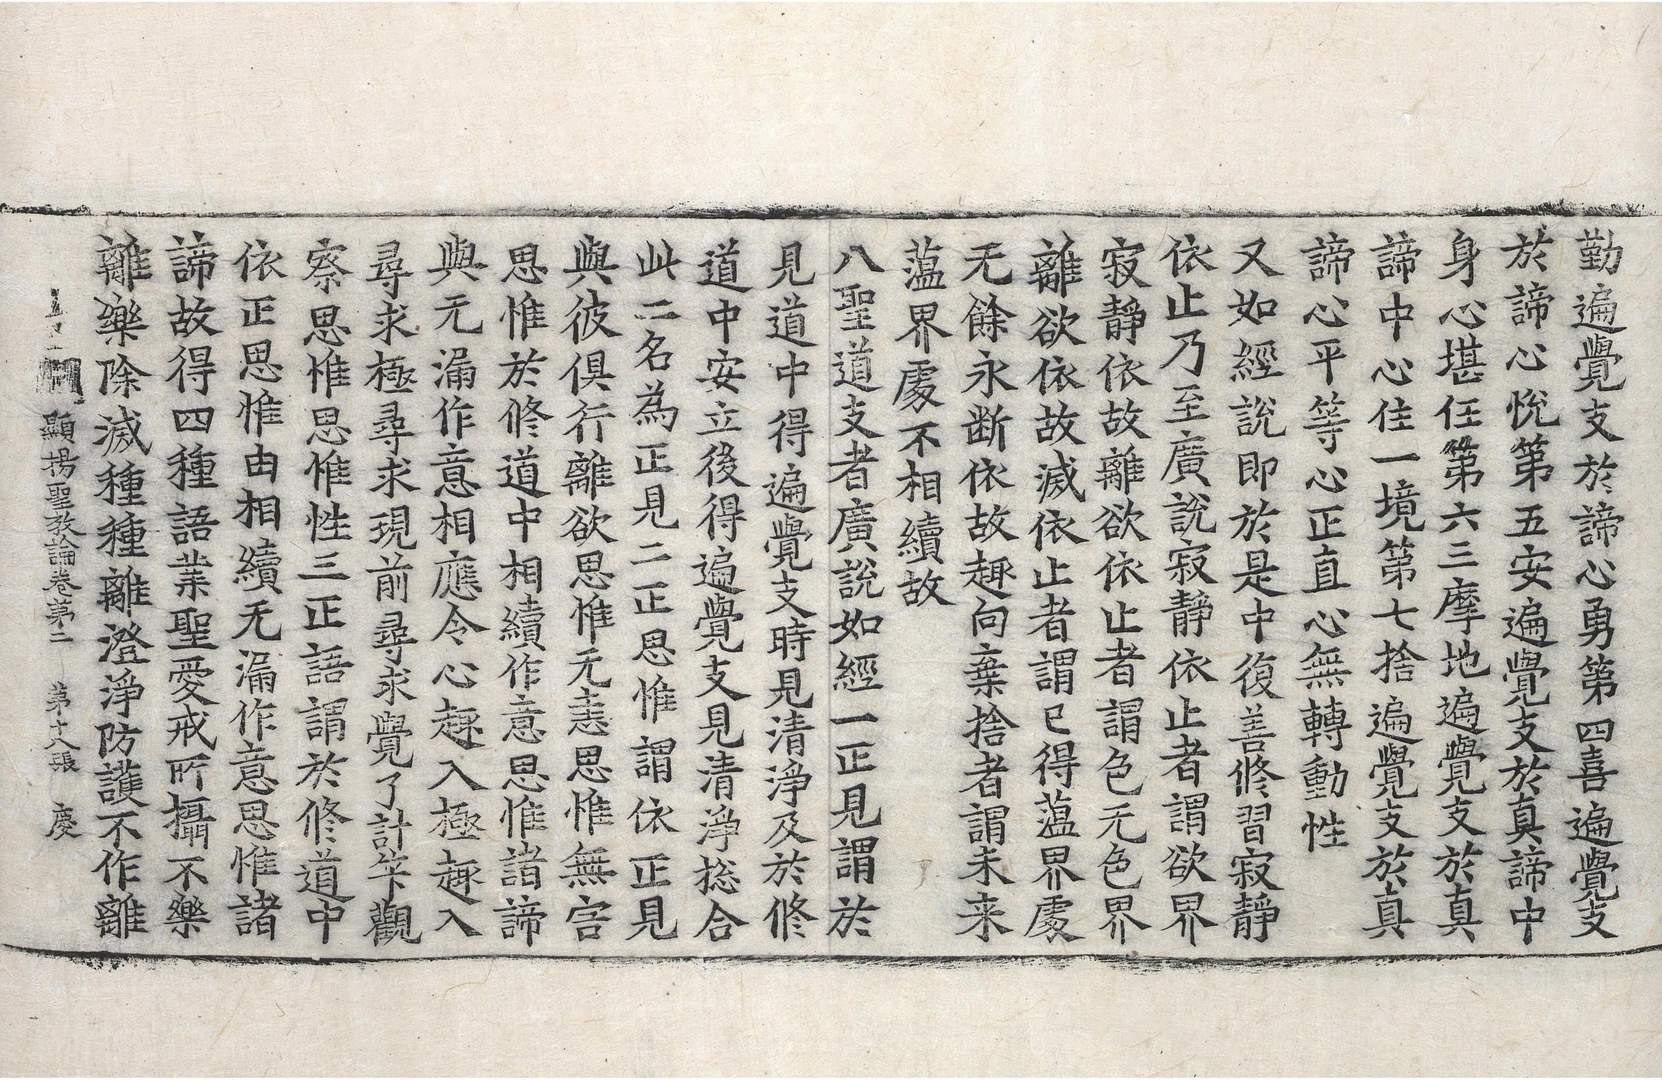 勤遍覺支於諦心勇第四喜遍覺支
於諦心悅第五安遍覺支於真諦中
身心堪任第六三摩地遍覺支於真
諦中心住一境第七捨遍覺支於真
諦心平等心正直心無轉動性
又如經說即於是中復善修習寂靜
依止乃至廣說寂靜依止者謂欲界
寂靜依故離欲依止者謂色无色界
離欲依故滅依止者謂已得薀界處
无餘永断依故趣向棄捨者謂未来
薀界處不相續故
八聖道支者廣說如經一正見謂於
見道中得遍覺支時見清淨及於修
道中安立後得遍覺支見清淨揔合
此二名為正見二正思惟謂依正見
與彼俱行離欲思惟无恚思惟無害
思惟於修道中相續作意思惟諸諦
與无漏作意相應令心趣入極趣入
尋求極尋求現前尋求覺了計筭觀
察思惟思惟性三正語謂於修道中
依正思惟由相續无漏作意思惟諸
諦故得四種語業聖愛戒所攝不樂
離樂除滅種種離澄淨防護不作離
顯揚聖教論卷第二 第十八張 慶